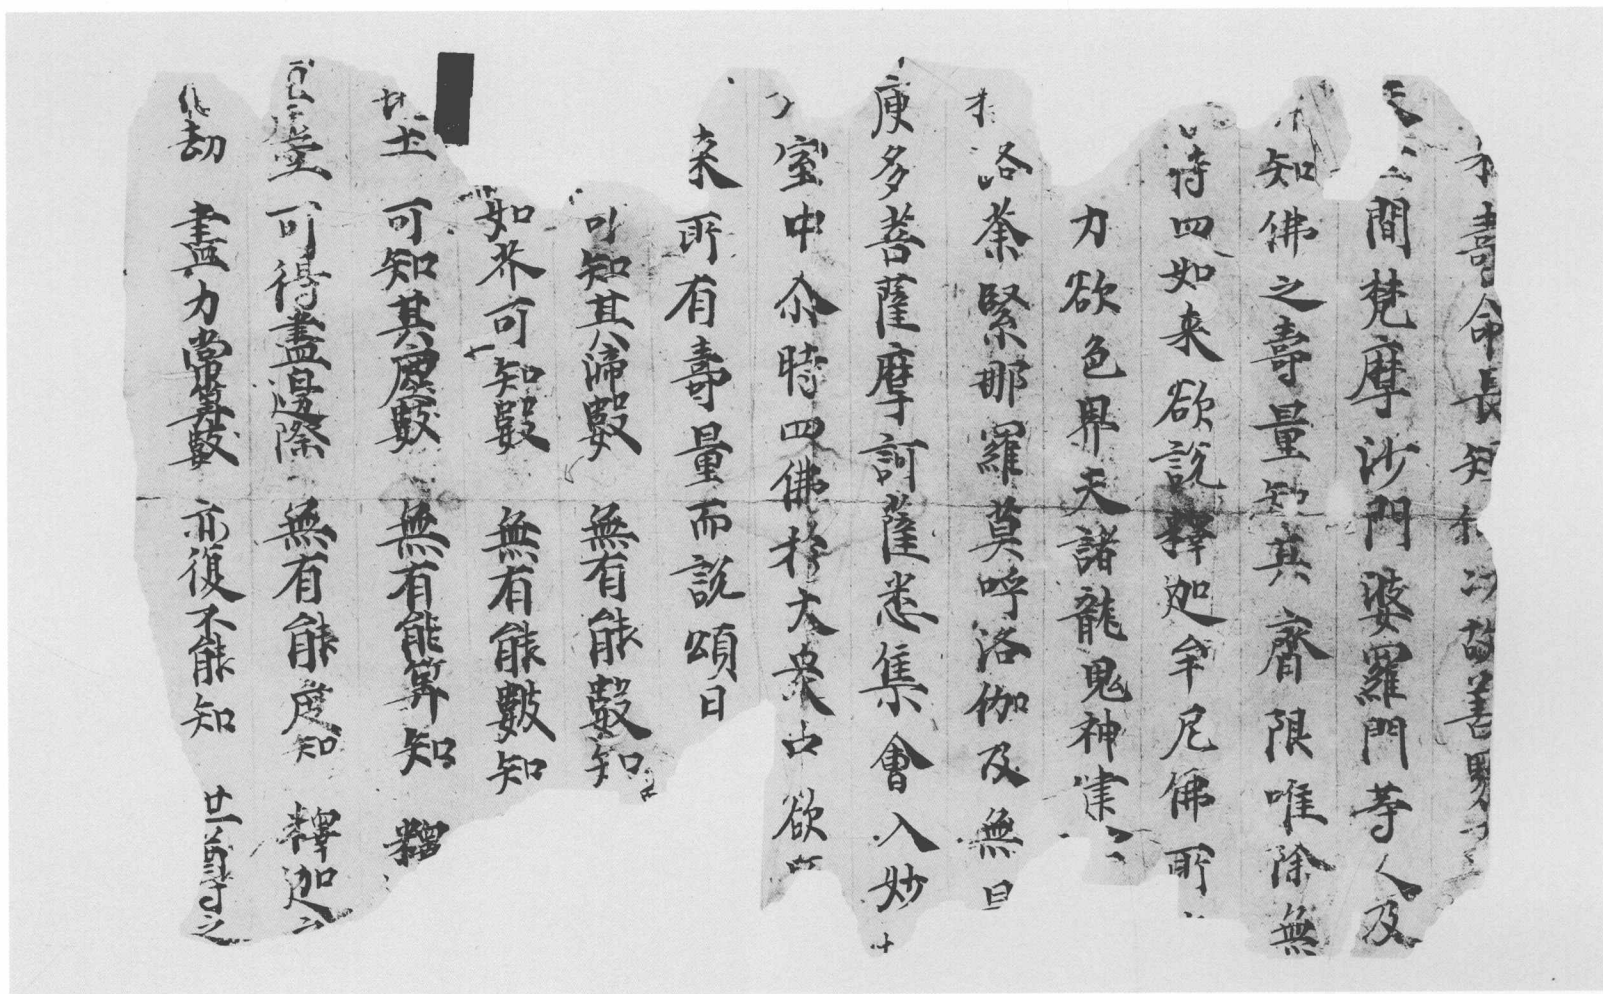 壽命長短何以故善男
天世間梵摩沙門婆羅門等人及
知佛之壽量知其齊限唯除無
時四如来欲說釋迦牟尼佛所
力欲色界天諸龍鬼神揵
洛荼緊那羅莫呼洛伽及無
庾多菩薩摩訶薩悉集會入妙
室中尒時四佛於大衆中欲
来所有壽量而說頌曰
可知其渧數 無有能數知
如芥可知數 無有能數知
地土 可知其塵數 無有能算知 釋
虛空 可得盡邊際 無有能度知 釋迦
劫 盡力常算數 亦復不能知 世尊之